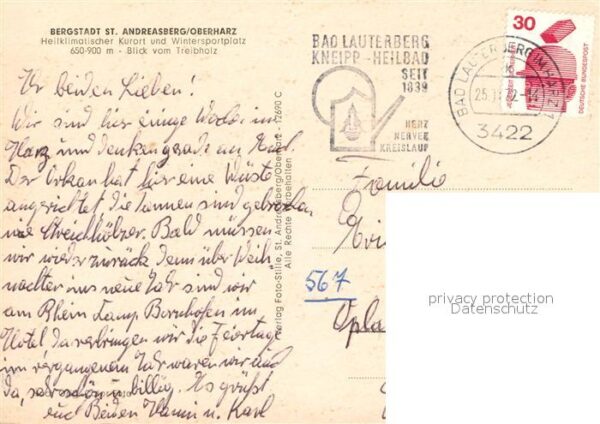 BERGSTADT ST. ANDREASBERG/OBERHARZ
Heilklimatischer Kurort und Wintersportplatz
650-900 m - Blick vom Treibholz
Ihr beiden Lieben!
Wir sind hier einige Wochen im
Harz und denken gerade an
Der Orkan hat hier eine Wüste
angerichtet, die Tannen sind gebrochen
wie Streichhölzer. Bald müssen
wir wieder zurück denn über Weih
nachten ins neue Jahr sind wir
am Rhein Kamp Bornhofen im
Hotel da verbringen wir die Feiertage
im vergangenem Jahr waren wir auch
da, sehr schön u. billig. Es grüßt
euch Beiden u. Karl
Verlag Foto-Stille, St. Andreasberg/Oberharz · 12690 C
Alle Rechte vorbehalten
BAD LAUTERBERG
KNEIPP-HEILBAD
SEIT
1839
HERZ
NERVEN
KREISLAUF
BAD LAUTERBERG IM HARZ 1
3422
30
DEUTSCHE BUNDESPOST
Familie
567
privacy protection
Datenschutz